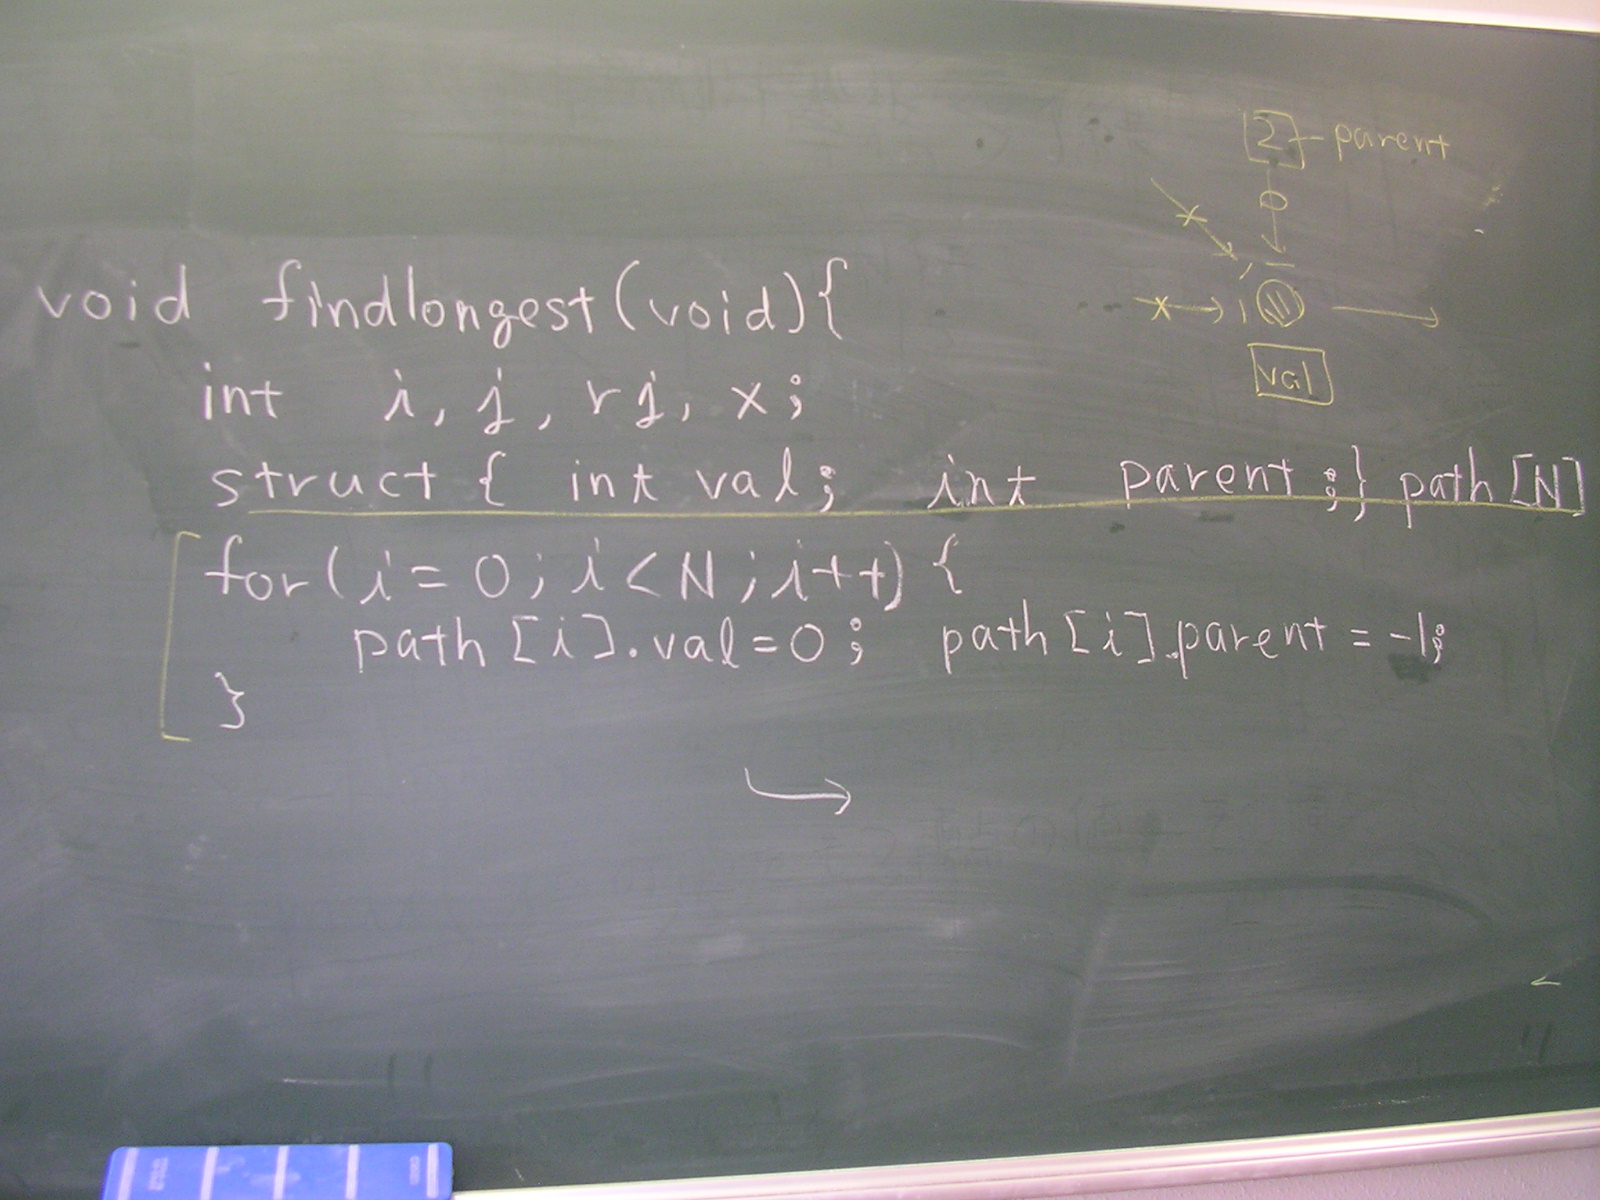 2 parent
void findlongest(void){
int i, j, rj, x;
val
struct { int val; int parent;} path[N]
for(i=0;i<N;i++){
path[i].val=0; path[i].parent = -1;
}